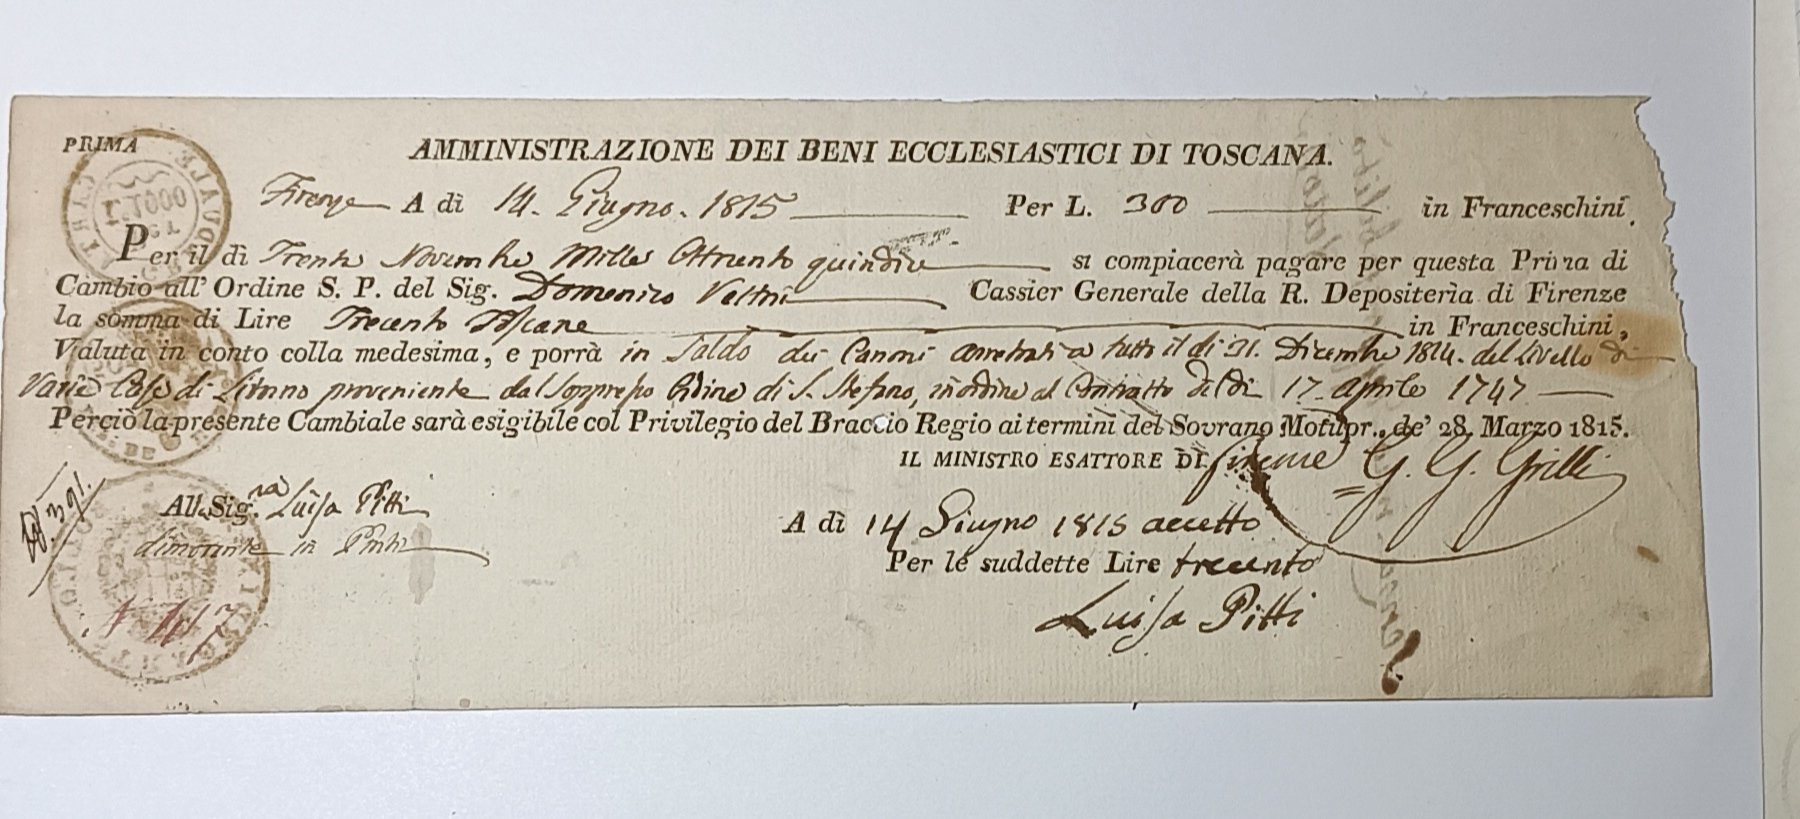 PRIMA
AMMINISTRAZIONE DEI BENI ECCLESIASTICI DI TOSCANA.
Firenze A dì 14. Giugno. 1815 Per L. 300 in Franceschini.
Per il dì Trenta Novembre Mille Ottocento quindici si compiacerà pagare per questa Prima di
Cambio all' Ordine S. P. del Sig. Domenico Veltri Cassier Generale della R. Depositeria di Firenze
la somma di Lire Trecento Toscane in Franceschini,
Valuta in conto colla medesima, e porrà in Saldo dei Canoni arretrati a tutto il dì 31. Dicembre 1814. del Livello di
Varie Case di Livorno proveniente dal Soppresso Ordine di S. Stefano, in ordine al Contratto del dì 17. Aprile 1747
Perciò la presente Cambiale sarà esigibile col Privilegio del Braccio Regio ai termini del Sovrano Motupr., de' 28. Marzo 1815.
IL MINISTRO ESATTORE DI Firenze G. G. Grilli
391.
Alla Sig.ra Luisa Pitti
dimorante in
A dì 14 Giugno 1815 accetto
Per le suddette Lire trecento
Luisa Pitti
N 417